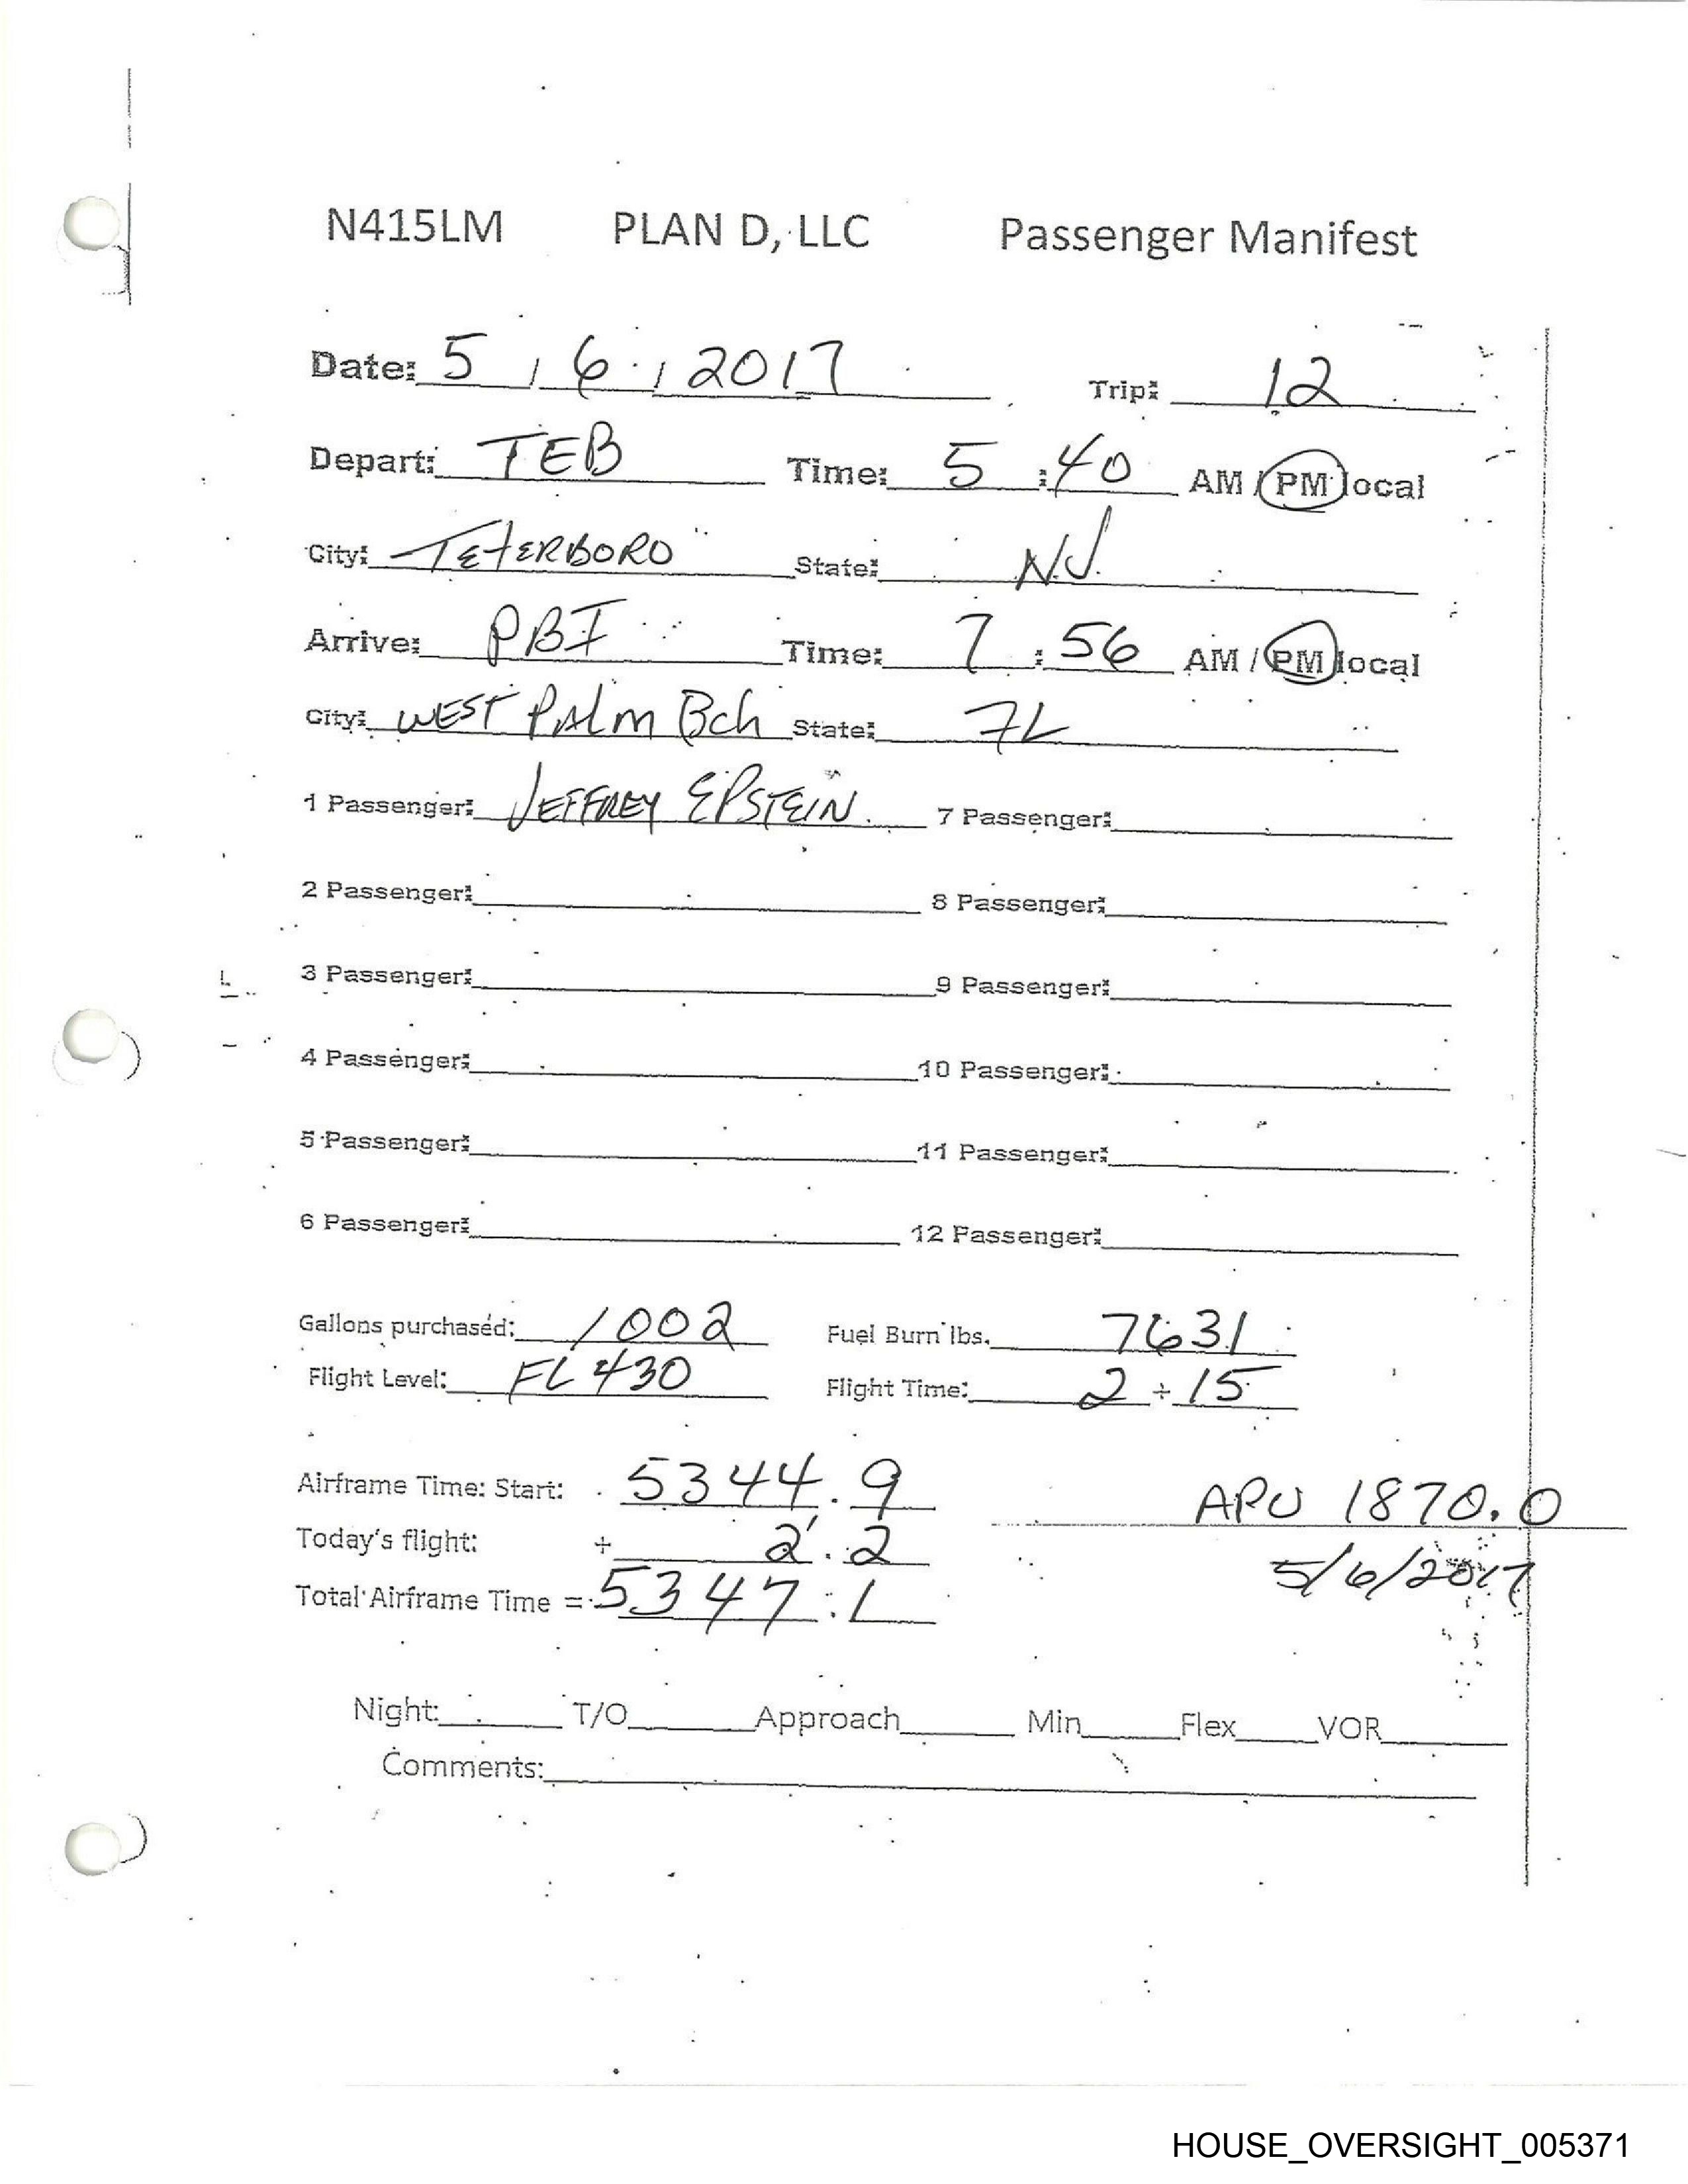 N415LM PLAN D, LLC Passenger Manifest
Date: 5 / 6 / 2017 Trip: 12
Depart: TEB Time: 5 : 40 AM / PM local
City: TETERBORO State: NJ.
Arrive: PBI Time: 7 : 56 AM / PM local
City: WEST PAlm Bch State: FL
1 Passenger: JEFFREY EPSTEIN. 7 Passenger:
2 Passenger: 8 Passenger:
3 Passenger: 9 Passenger:
4 Passenger: 10 Passenger:
5 Passenger: 11 Passenger:
6 Passenger: 12 Passenger:
Gallons purchased: 1002 Fuel Burn lbs. 7631
Flight Level: FL 430 Flight Time: 2 + 15
Airframe Time: Start: 5344.9 APU 1870.0
Today's flight: + 2.2 5/6/2017
Total Airframe Time = 5347.1
Night: T/O Approach Min Flex VOR
Comments:
HOUSE_OVERSIGHT_005371